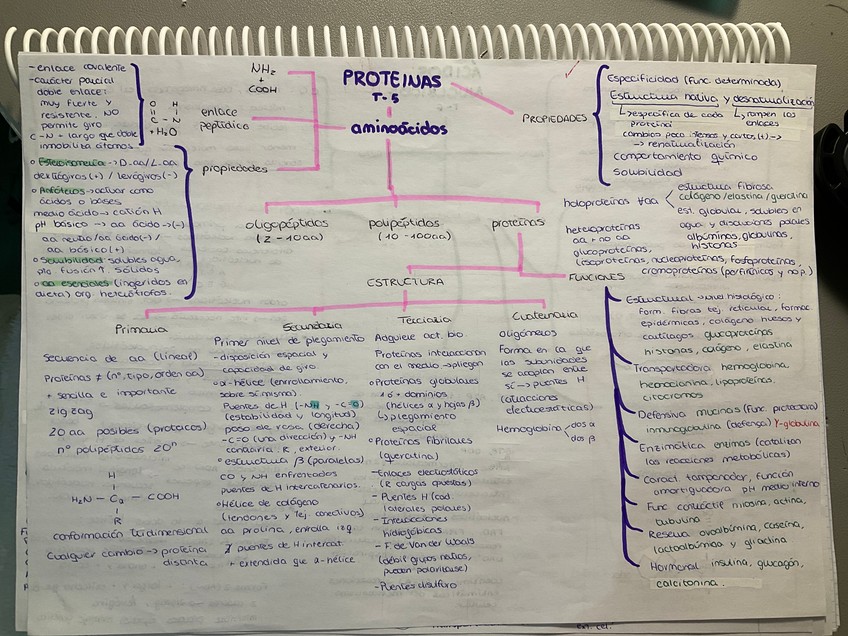 PROTEINAS
T-5
aminoácidos
NH₂
+
COOH
enlace
peptídico
propiedades
- enlace covalente
- carácter parcial
doble enlace:
muy fuerte y
resistente. NO
permite giro
C-N + largo que doble
inmobiliza átomos.
O H
C - N
+ H₂O
Estereoisomería -> D-aa/L-aa
dextrógiros (+) / levógiros (-)
Anfóteros -> actuar como
ácidos o bases
medio ácido -> catión H
pH básico -> aa ácido -> (-)
aa neutro/aa ácido (-) /
aa básico (+)
Solubilidad solubles agua,
pto fusión ↑. sólidos
aa esenciales (ingeridos en
dieta) org. heterótrofos.
PROPIEDADES
Especificidad (Func. determinada)
Estructura nativa y desnaturalización
específica de cada
proteína
rompen los
enlaces
cambios peco. temas y cortos (+) ->
-> renaturalización
comportamiento químico
solubilidad
oligopéptidos
(2 - 10aa)
polipéptidos
(10 - 100aa)
proteínas
holoproteínas #aa
estructura fibrosa
colágeno/elastina/queratina
est. globular, solubles en
agua y disoluciones polares
albúminas, globulinas,
histonas
heteroproteínas
aa + no aa
glucoproteínas,
lipoproteínas, nucleoproteínas, fosfoproteínas,
cromoproteínas (porfirínicas y no p.)
ESTRUCTURA
FUNCIONES
Primaria
Secuencia de aa (lineal)
Proteínas ≠ (nº, tipo, orden aa)
+ sencilla e importante
zig zag
20 aa posibles (protacos)
nº polipéptidos 20ⁿ
H
H₂N - Cα - COOH
R
conformación tridimensional
Cualquier cambio -> proteína
distinta
Secundaria
Primer nivel de plegamiento
- disposición espacial y
capacidad de giro.
α-hélice (enrollamiento,
sobre sí misma).
Puentes de H (-NH y -C=O)
(estabilidad y longitud)
paso de rosca (derecha)
-C=O (una dirección) y -NH
contraria. R, exterior.
estructura β (paralelas)
CO y NH enfrentados
puentes de H intercatenarios.
Hélice de colágeno
(tendones y tej. conectivos)
aa prolina, enrolla izq.
∄ puentes de H intercat.
+ extendida que α-hélice
Terciaria
Adquiere act. bio
Proteínas interaccionan
con el medio -> pliegan
Proteínas globulares
1 ó + dominios
(hélices α y hojas β)
plegamiento
espacial
Proteínas fibrilares
(queratina)
- Enlaces electrostáticos
(R cargas opuestas)
- Puentes H (cad.
laterales polares)
- Interacciones
hidrofóbicas
- F de Van der Waals
(débil grupos neutros,
pueden polarizarse)
- Puentes disulfuro
Cuaternaria
oligómeros
Forma en la que
las subunidades
se acoplan entre
sí -> puentes H
(atracciones
electrostáticas)
Hemoglobina
dos α
dos β
Estructural -> nivel histológico:
form. fibras tej. reticular, formac.
epidérmicas, colágeno huesos y
cartílagos glucoproteínas
histonas, colágeno, elastina
Transportadora hemoglobina,
hemocianina, lipoproteínas,
citocromos
Defensiva mucinas (func. protectora)
inmunoglobulina (defensa) γ-globulina
Enzimática enzimas (catalizan
las reacciones metabólicas)
Caract. tamponador, función
amortiguadora pH medio interno
Func contráctil miosina, actina,
tubulina
Reserva ovoalbúmina, caseína,
lactoalbúmina y gliactina
Hormonal insulina, glucagón,
calcitonina.